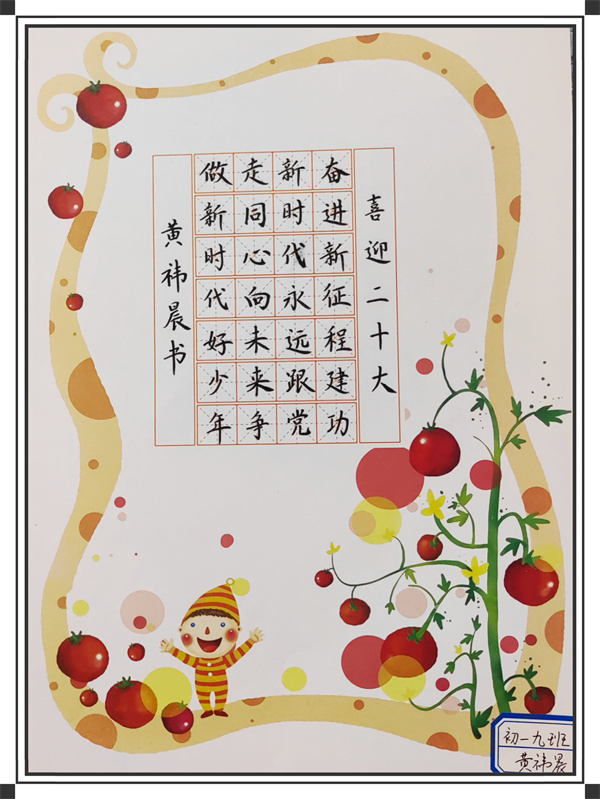 喜迎二十大
奋进新征程建功
新时代永远跟党
走同心向未来争
做新时代好少年
黄祎晨书
初一九班
黄祎晨